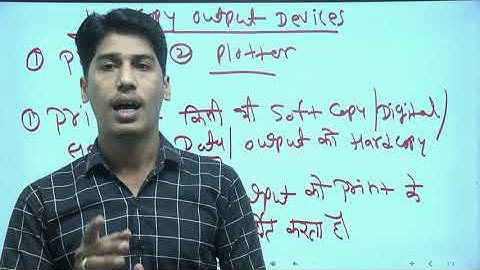 Copy Output Devices
① P ② Plotter
① Pri किसी भी Soft Copy/Digital/
Data/ Output को Hardcopy
utput को Print के
करता है।